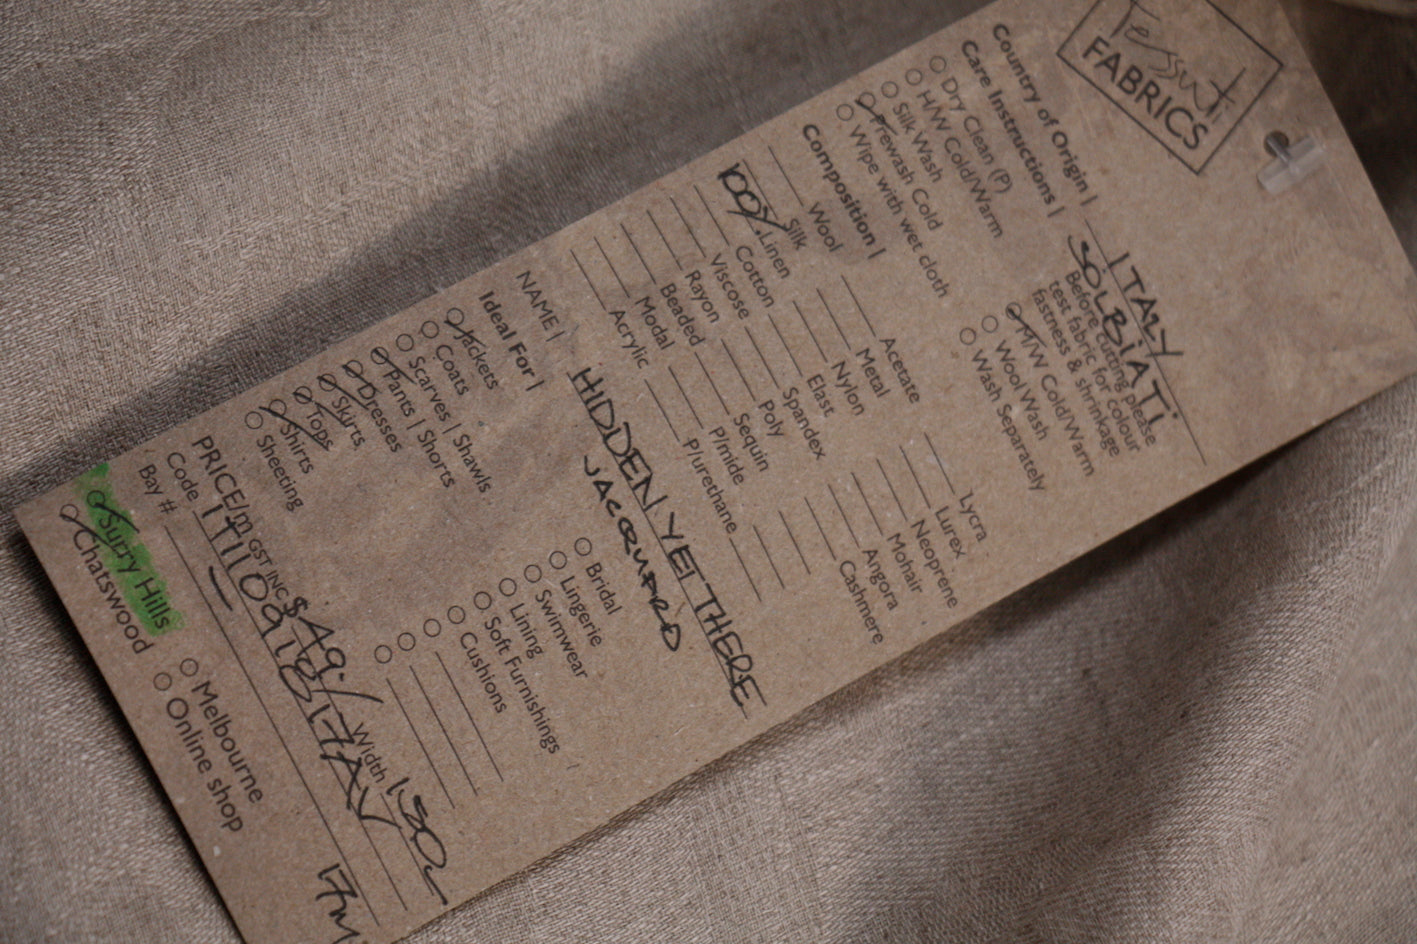 Tessuti
FABRICS
Country of Origin | ITALY
SOLBIATI
Care Instructions | Before cutting please
test fabric for colour
fastness & shrinkage
Dry Clean (P)
H/W Cold/Warm
Silk Wash
Prewash Cold
Wipe with wet cloth
M/W Cold/Warm
Wool Wash
Wash Separately
Composition |
Wool
Silk
100% Linen
Cotton
Viscose
Rayon
Beaded
Modal
Acrylic
Acetate
Metal
Nylon
Elast
Spandex
Poly
Sequin
P/mide
P/urethane
Lycra
Lurex
Neoprene
Mohair
Angora
Cashmere
NAME | HIDDEN YET THERE
JACQUARD
Ideal For |
Jackets
Coats
Scarves | Shawls
Pants | Shorts
Dresses
Skirts
Tops
Shirts
Sheeting
Bridal
Lingerie
Swimwear
Lining
Soft Furnishings
Cushions
PRICE/m GST INC $49./ Width 150
Code
Bay #
17m
Surry Hills
Chatswood
Melbourne
Online shop